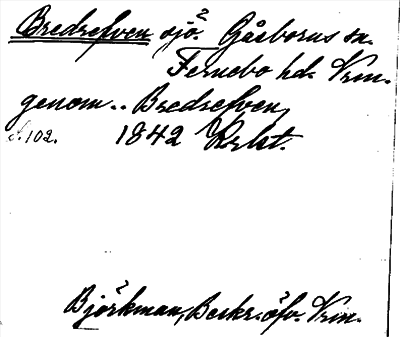 Bredrefven sjö. Gåsborns sn.
Fernebo hd. Vrm.
genom.. Bredrefven,
s. 102. 1842 Krlst.
Björkman, Beskr. öfv. Vrm.